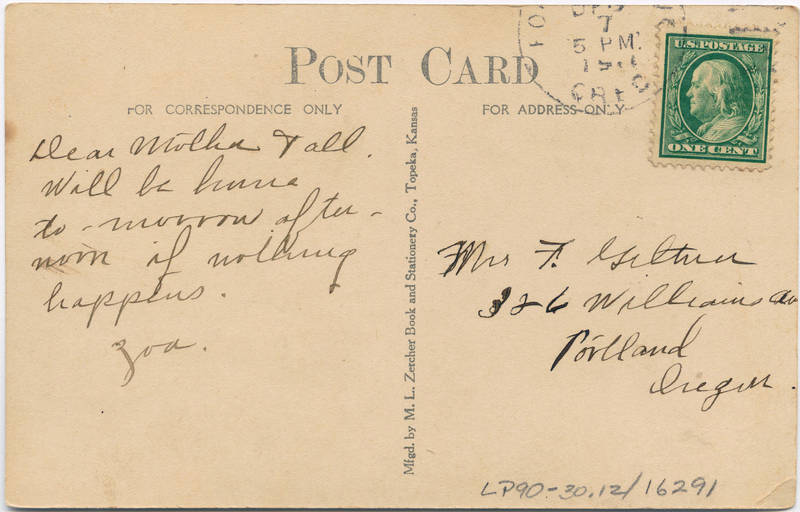 POST CARD
FOR CORRESPONDENCE ONLY
FOR ADDRESS ONLY
7
5 PM.
U.S. POSTAGE
ONE CENT
Dear Mother & all.
Will be home
to-morrow after-
noon if nothing
happens.
Zoa.
Mfgd. by M. L. Zercher Book and Stationery Co., Topeka, Kansas
Mrs F. Giltner
326 Williams av
Portland
Oregon.
LP90-30.12/16291